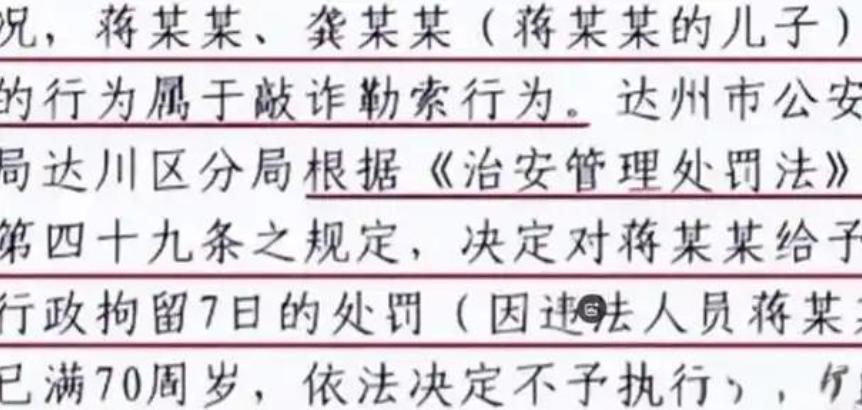 况，蒋某某、龚某某（蒋某某的儿子）
的行为属于敲诈勒索行为。达州市公安
局达川区分局根据《治安管理处罚法》
第四十九条之规定，决定对蒋某某给予
行政拘留7日的处罚（因违法人员蒋某
已满70周岁，依法决定不予执行），